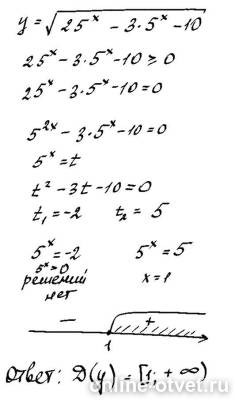 y = √(25ˣ − 3·5ˣ − 10)
25ˣ − 3·5ˣ − 10 ≥ 0
25ˣ − 3·5ˣ − 10 = 0
5²ˣ − 3·5ˣ − 10 = 0
5ˣ = t
t² − 3t − 10 = 0
t₁ = −2 t₂ = 5
5ˣ = −2 5ˣ = 5
5ˣ > 0
решений x = 1
нет
− +
1
Ответ: D(y) = [1; +∞)
online-otvet.ru